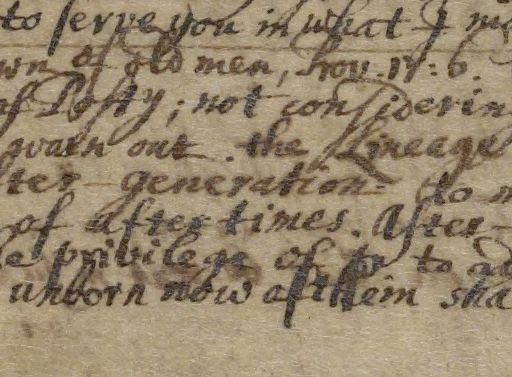 to serve you in what I
of old men, Prov. 17: 6.
of Posty; not considerin
worn out. the Lineage
ter generation. to
of after times. After-
privilege of to
unborn now of them sha